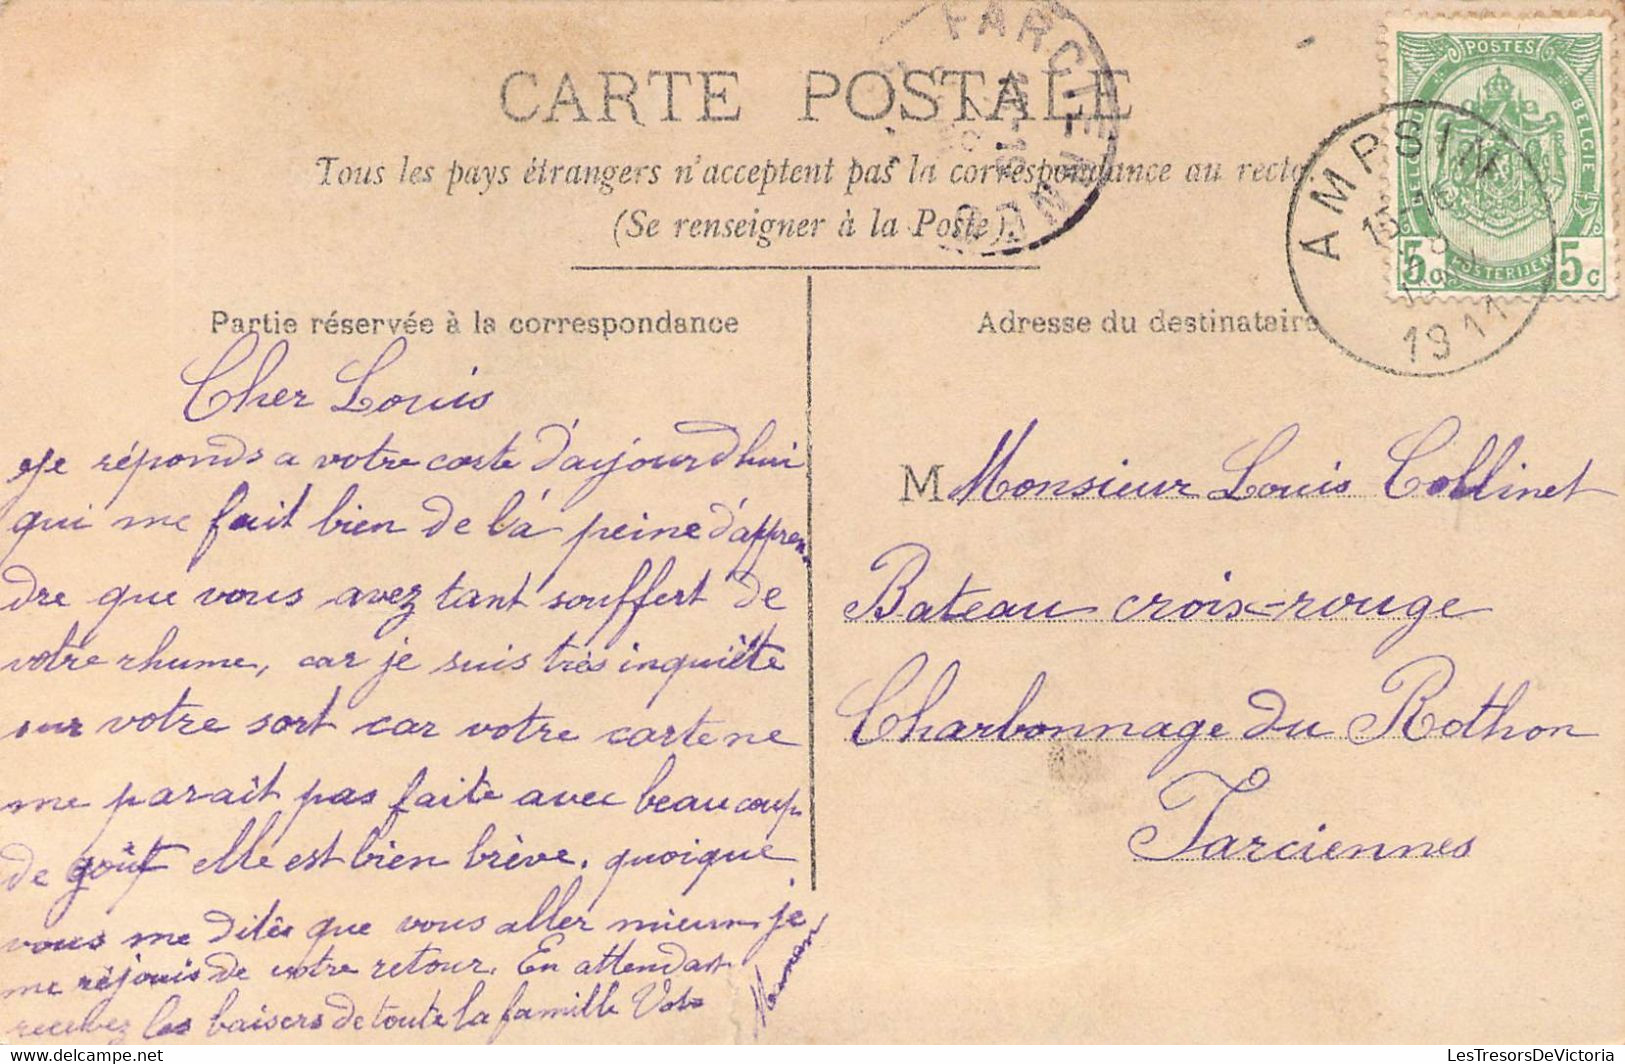 CARTE POSTALE
Tous les pays étrangers n'acceptent pas la correspondance au recto.
(Se renseigner à la Poste).
FARCIENNES
POSTES
BELGIQUE
BELGIE
5 POSTERIJEN 5c
AMPSIN
1911
Partie réservée à la correspondance
Cher Louis
Je réponds a votre carte d'aujourdhui
qui me fait bien de la peine d'appren-
dre que vous avez tant souffert de
votre rhume, car je suis très inquiète
sur votre sort car votre carte ne
me parait pas faite avec beaucoup
de goût elle est bien brève. quoique
vous me dites que vous aller mieux je
me réjouis de votre retour. En attendant
recevez les baisers de toute la famille Vot
Adresse du destinataire
M Monsieur Louis Collinet
Bateau croix-rouge
Charbonnage du Rothon
Farciennes
LesTresorsDeVictoria